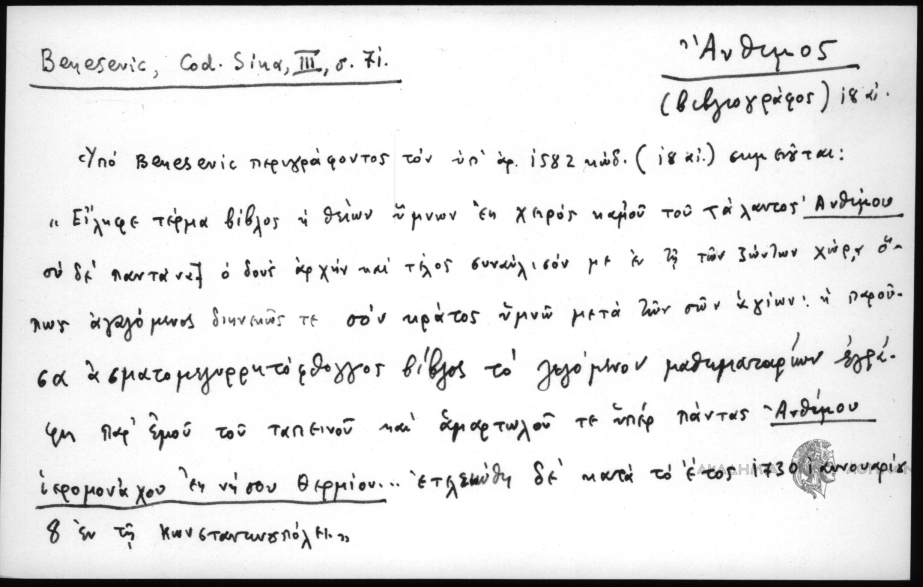 Benesevic, Cod. Sina, III, σ. 71.
Ἄνθιμος
(βιβλιογράφος) 18 αἰ.
Ὑπό Benesevic περιγράφοντος τόν ὑπ' ἀρ. 1582 κώδ. (18 αἰ.) σημειοῦται:
„ Εἴληφε τέρμα βίβλος ἡ θείων ὕμνων ἐκ χειρός κἀμοῦ τοῦ τάλαντος Ἀνθίμου
σύ δέ ὁ δούς ἀρχήν καί τέλος συναύλισόν με ἐν τῇ τῶν ζώντων χώρᾳ ὅ-
πως ἀγαλόμενος διηνεκῶς τε σόν κράτος ὑμνῶ μετά τῶν σῶν ἁγίων: ἡ παροῦ-
σα ἀσματομελυρρητόφθογγος βίβλος τό λεγόμενον μαθηματαρίων ἐγρά-
φη παρ' ἐμοῦ τοῦ ταπεινοῦ καί ἁμαρτωλοῦ τε ὑπέρ πάντας Ἀνθίμου
ἱερομονάχου ἐκ νήσου Θερμίων... ἐτελειώθη δέ κατά τό ἔτος 1730 ἰαννουαρίου
8 ἐν τῇ Κωνσταντινουπόλει.„
ΑΚΑΔΗΜΙΑ